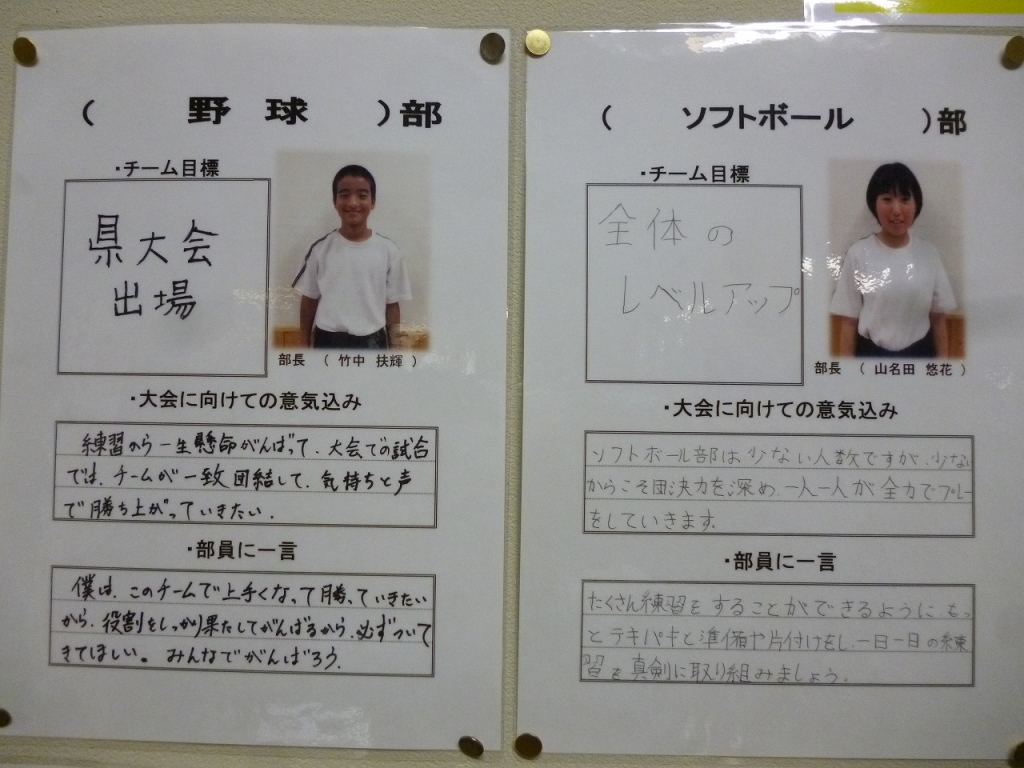 ( 野球 )部
・チーム目標
県大会
出場
部長 ( 竹中 扶輝 )
・大会に向けての意気込み
練習から一生懸命がんばって、大会での試合
では、チームが一致団結して、気持ちと声
で勝ち上がっていきたい。
・部員に一言
僕は、このチームで上手くなって勝っていきたい
から、役割をしっかり果たしてがんばるから、必ずついて
きてほしい。みんなでがんばろう。
( ソフトボール )部
・チーム目標
全体の
レベルアップ
部長 ( 山名田 悠花 )
・大会に向けての意気込み
ソフトボール部は少ない人数ですが、少ない
からこそ団決力を深め、一人一人が全力でプレー
をしていきます。
・部員に一言
たくさん練習をすることができるように、もっ
とテキパキと準備や片付けをし、一日一日の練
習を真剣に取り組みましょう。